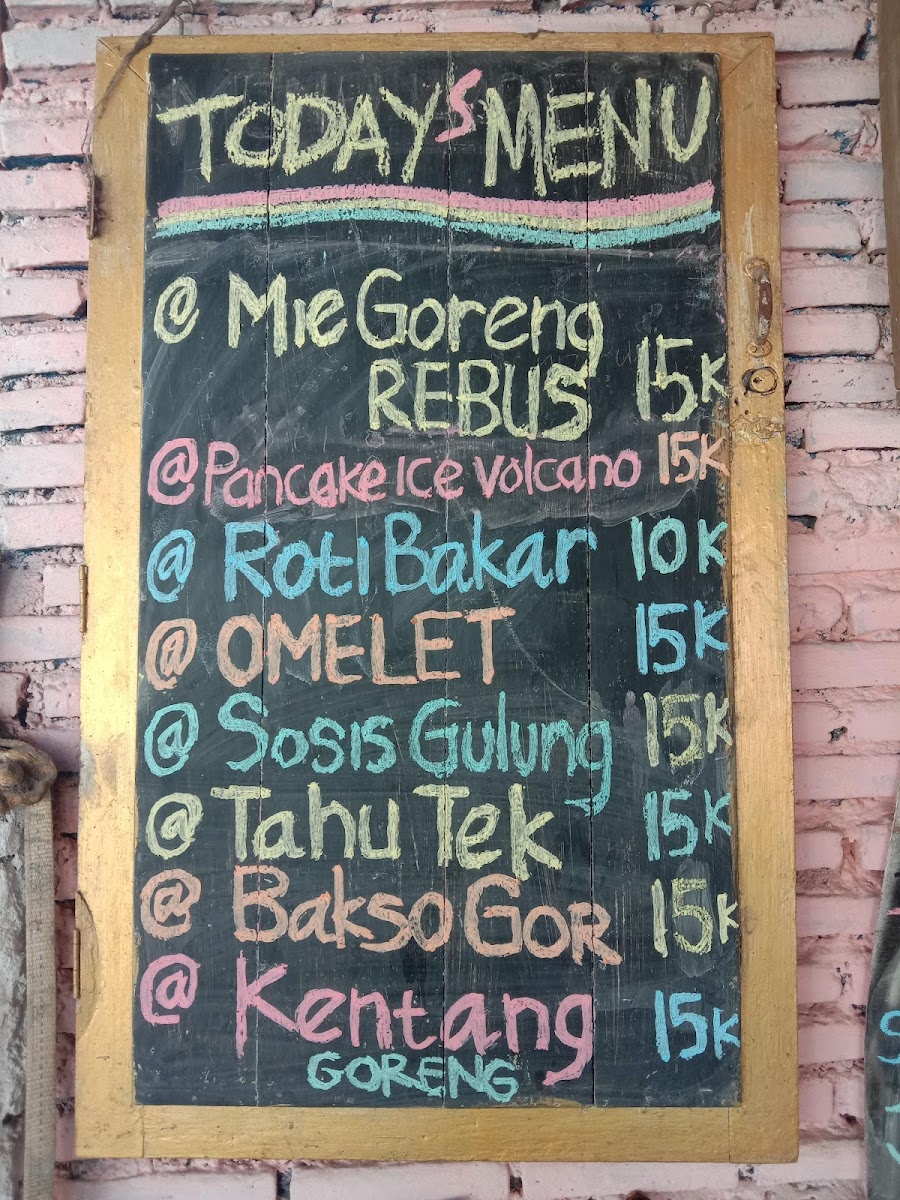 TODAY'S MENU
@ Mie Goreng
REBUS 15K
@ Pancake Ice Volcano 15K
@ Roti Bakar 10K
@ OMELET 15K
@ Sosis Gulung 15K
@ Tahu Tek 15K
@ Bakso GOR 15K
@ Kentang 15K
GORENG